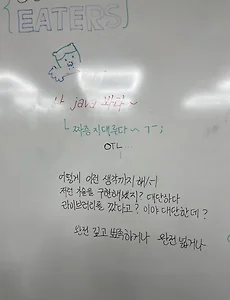 EATERS
나 java 왔다~
ㄴ 짜증지대루다~ ㅜ-;
OTL
어떻게 이런 생각까지 해서
저런 것을 구현해냈지? 대단하다
라이브러리를 깠다고? 이야 대단한데?
완전 깊고 뾰족하거나 완전 넓거나